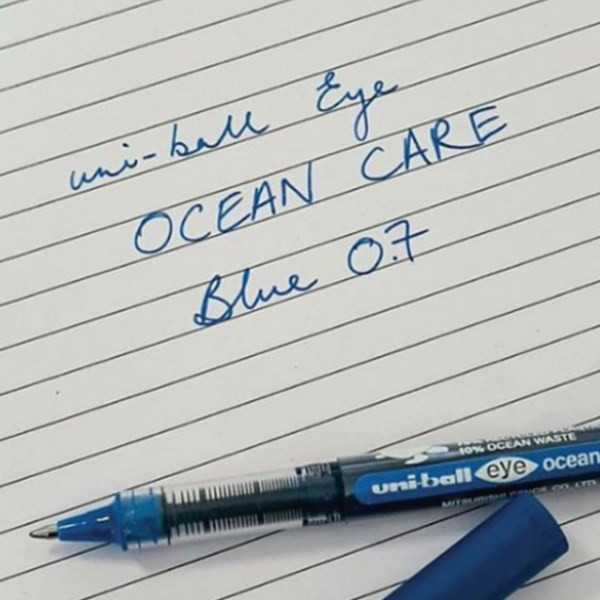 uni-ball Eye
OCEAN CARE
Blue 0.7
10% OCEAN WASTE
uni-ball eye ocean
MITSUBISHI PENCIL CO., LTD.